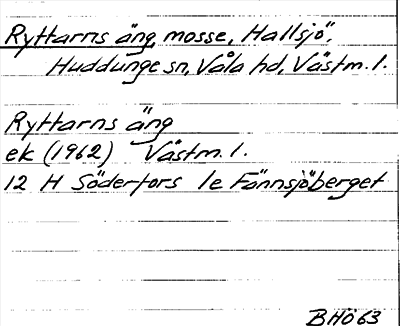 Ryttarns äng, mosse, Hallsjö,
Huddunge sn, Våla hd, Västm. l.
Ryttarns äng
ek (1962) Västm. l.
12 H Söderfors 1e Fännsjöberget
BHÖ63